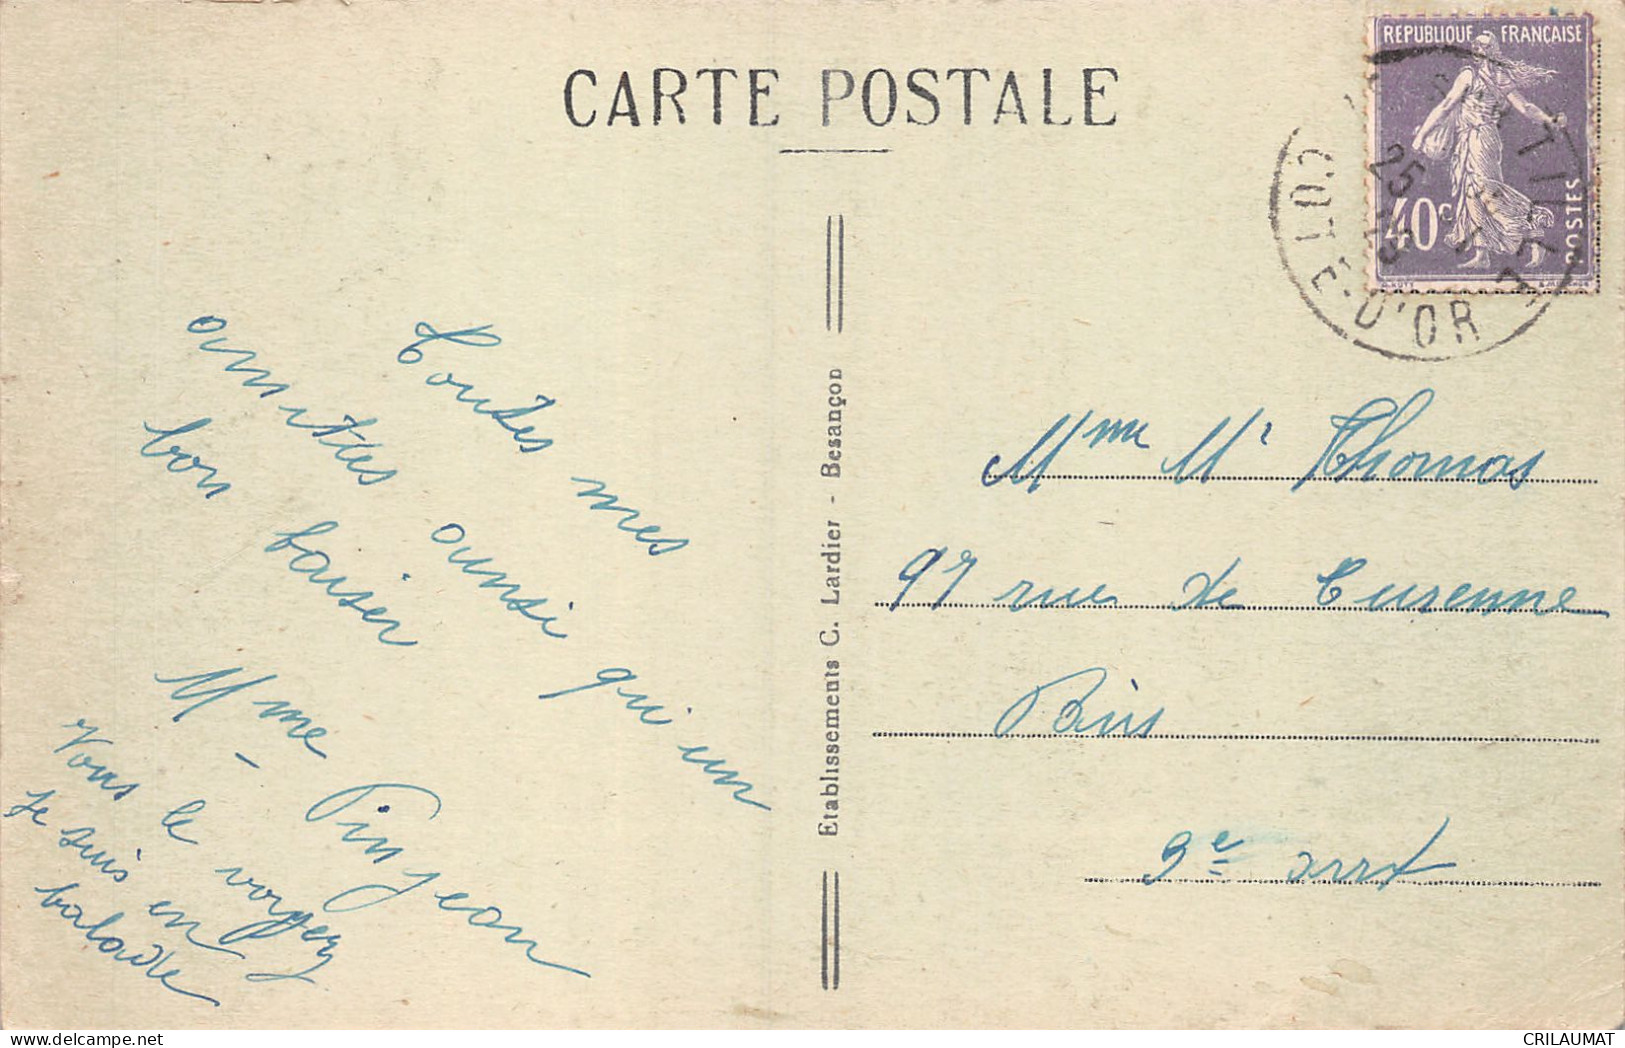 CARTE POSTALE
REPUBLIQUE FRANÇAISE
40c
POSTES
COTE-D'OR
25
Toutes mes
amitiés ainsi qu'un
bon baiser
Mme Pinjean
Vous le voyez
je suis en
balade
Etablissements C. Lardier - Besançon
Mme Mr Thomas
97 rue de Turenne
Paris
3e arrt
CRILAUMAT